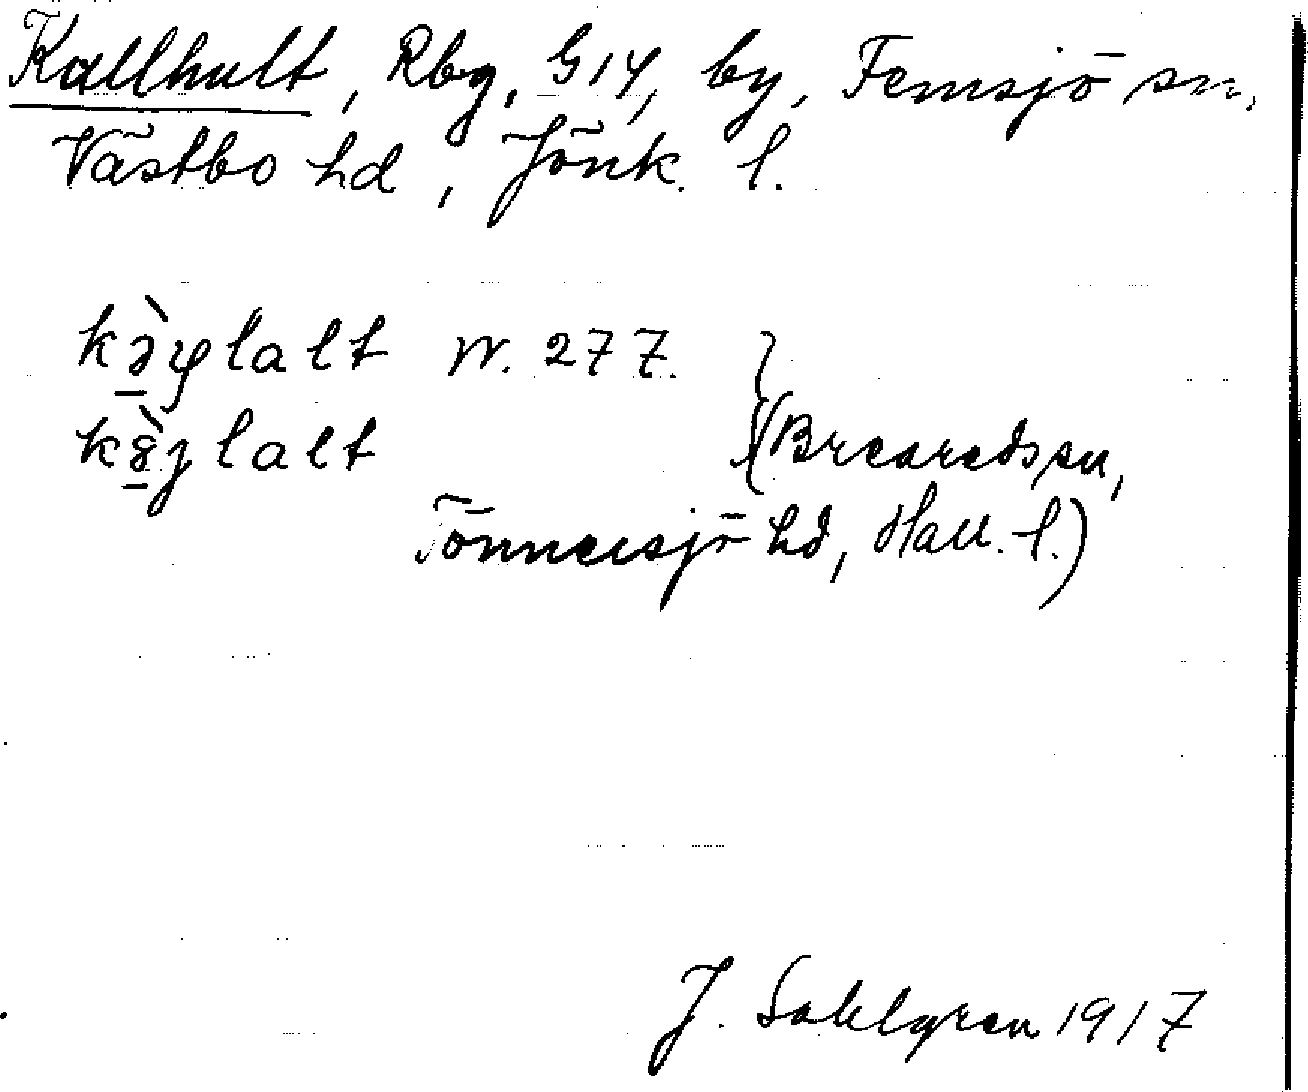 Kallhult, Rbg, G 14, by, Femsjö sn,
Västbo hd, Jönk. l.
W. 277.
(Breareds sn,
Tönnersjö hd, Hall. l.)
J. Sahlgren 1917